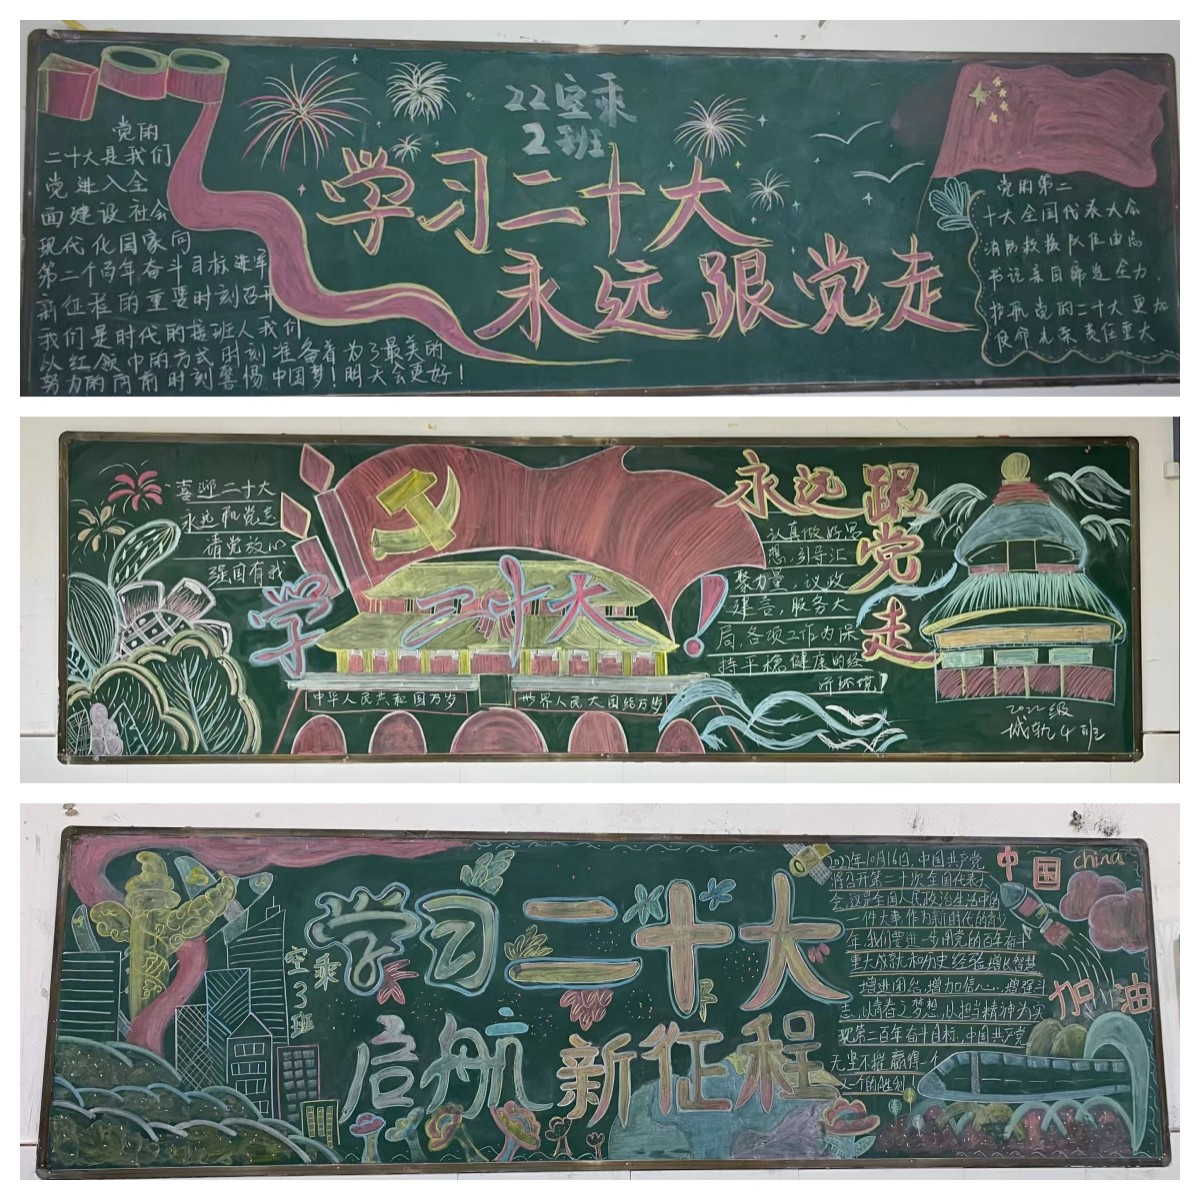 22空乘
2班
学习二十大
永远跟党走
党的
二十大是我们
党进入全
面建设社会
现代化国家向
第二个百年奋斗目标进军
新征程的重要时刻召开
我们是时代的接班人我们
以红领巾的方式时刻准备着为了最美的
努力的向前时刻警惕中国梦！明天会更好！
党的第二
十大全国代表大会
消防救援队伍由总
书记亲自缔造全力
护航党的二十大更加
使命光荣责任重大
喜迎二十大
永远和党走
请党放心
强国有我
学二十大！
中华人民共和国万岁
世界人民大团结万岁
永远跟党走
认真做好思
想引导汇
聚力量，议政
建言，服务大
局，各项工作为保
持平稳健康的经
济环境！
2022级
城轨4班
空乘3班
学习二十大
启航新征程
2022年10月16日，中国共产党
将召开第二十次全国代表大
会，这是全国人民政治生活中的
一件大事作为新时代的青少
年，我们要进一步用党的百年奋斗
重大成就和历史经验增长智慧
增进团结，增加信心，增强斗
志，以青春之梦想，以担当精神为实
现第二百年奋斗目标，中国共产党
无坚不摧赢得一个
又一个的胜利！
中国
china
加油